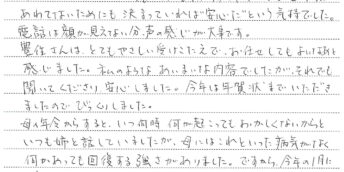 あわてないためにも決まっていれば"安心だ"という気持でした。
電話は顔が見えない分、声の感じが大事です。
さんは、とてもやさしい受けこたえで、お任せしてもよいなあと
感じました。私のようなあいまいな内容でしたが、それでも
聞いてくださり、安心しました。今年は年賀状までいただき
ましたのでびっくりしました。
母の年令からすると、いつ何時何が起こってもおかしくないからと
いつも姉と話していましたが、母にはこれといった病気がなく
何かあっても回復する強さがありました。ですから、今年の1月に